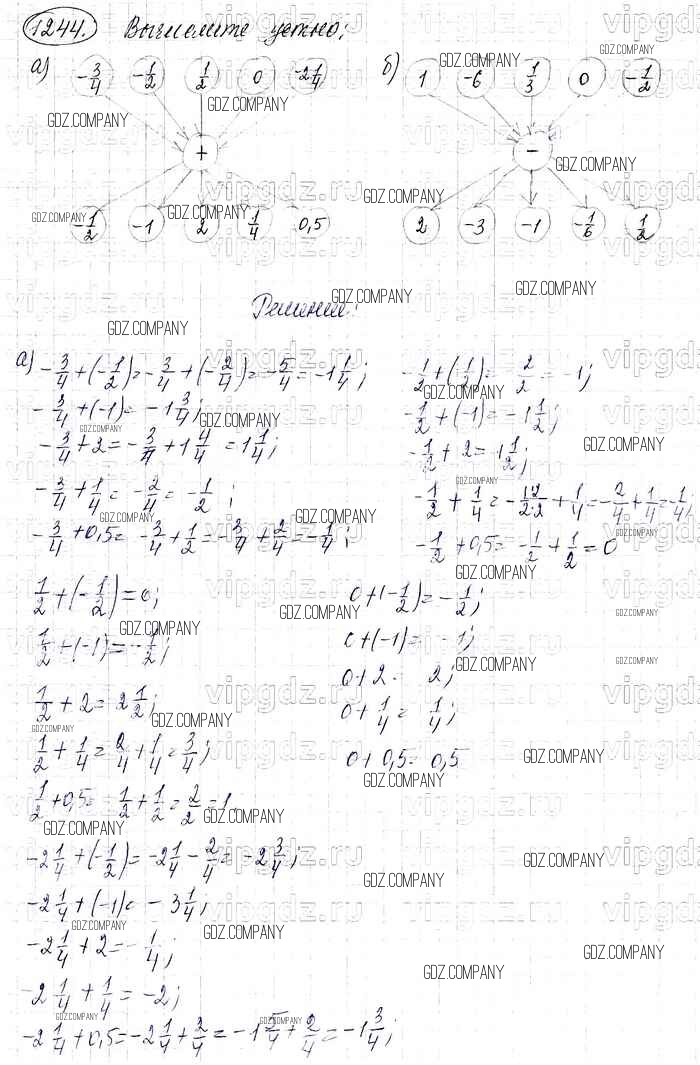 1244. Вычислите устно:
а) -3/4 -1/2 1/2 0 -2 1/4
+
-1/2 -1 2 1/4 0,5
б) 1 -6 1/3 0 -1/2
-
2 -3 -1 -1/6 1/2
Решение:
а) -3/4 + (-1/2) = -3/4 + (-2/4) = -5/4 = -1 1/4;
-3/4 + (-1) = -1 3/4;
-3/4 + 2 = -3/4 + 1 4/4 = 1 1/4;
-3/4 + 1/4 = -2/4 = -1/2;
-3/4 + 0,5 = -3/4 + 1/2 = -3/4 + 2/4 = -1/4;
-1/2 + (1/2) = 2/2 = -1;
-1/2 + (-1) = -1 1/2;
-1/2 + 2 = 1 1/2;
-1/2 + 1/4 = -1·2/2·2 + 1/4 = -2/4 + 1/4 = -1/4;
-1/2 + 0,5 = -1/2 + 1/2 = 0
1/2 + (-1/2) = 0;
1/2 + (-1) = -1/2;
1/2 + 2 = 2 1/2;
1/2 + 1/4 = 2/4 + 1/4 = 3/4;
1/2 + 0,5 = 1/2 + 1/2 = 2/2 = 1
0 + (-1/2) = -1/2;
0 + (-1) = -1;
0 + 2 = 2;
0 + 1/4 = 1/4;
0 + 0,5 = 0,5
-2 1/4 + (-1/2) = -2 1/4 - 2/4 = -2 3/4;
-2 1/4 + (-1) = -3 1/4;
-2 1/4 + 2 = -1/4;
-2 1/4 + 1/4 = -2;
-2 1/4 + 0,5 = -2 1/4 + 2/4 = -1 5/4 + 2/4 = -1 3/4;
GDZ.COMPANY
vipgdz.ru